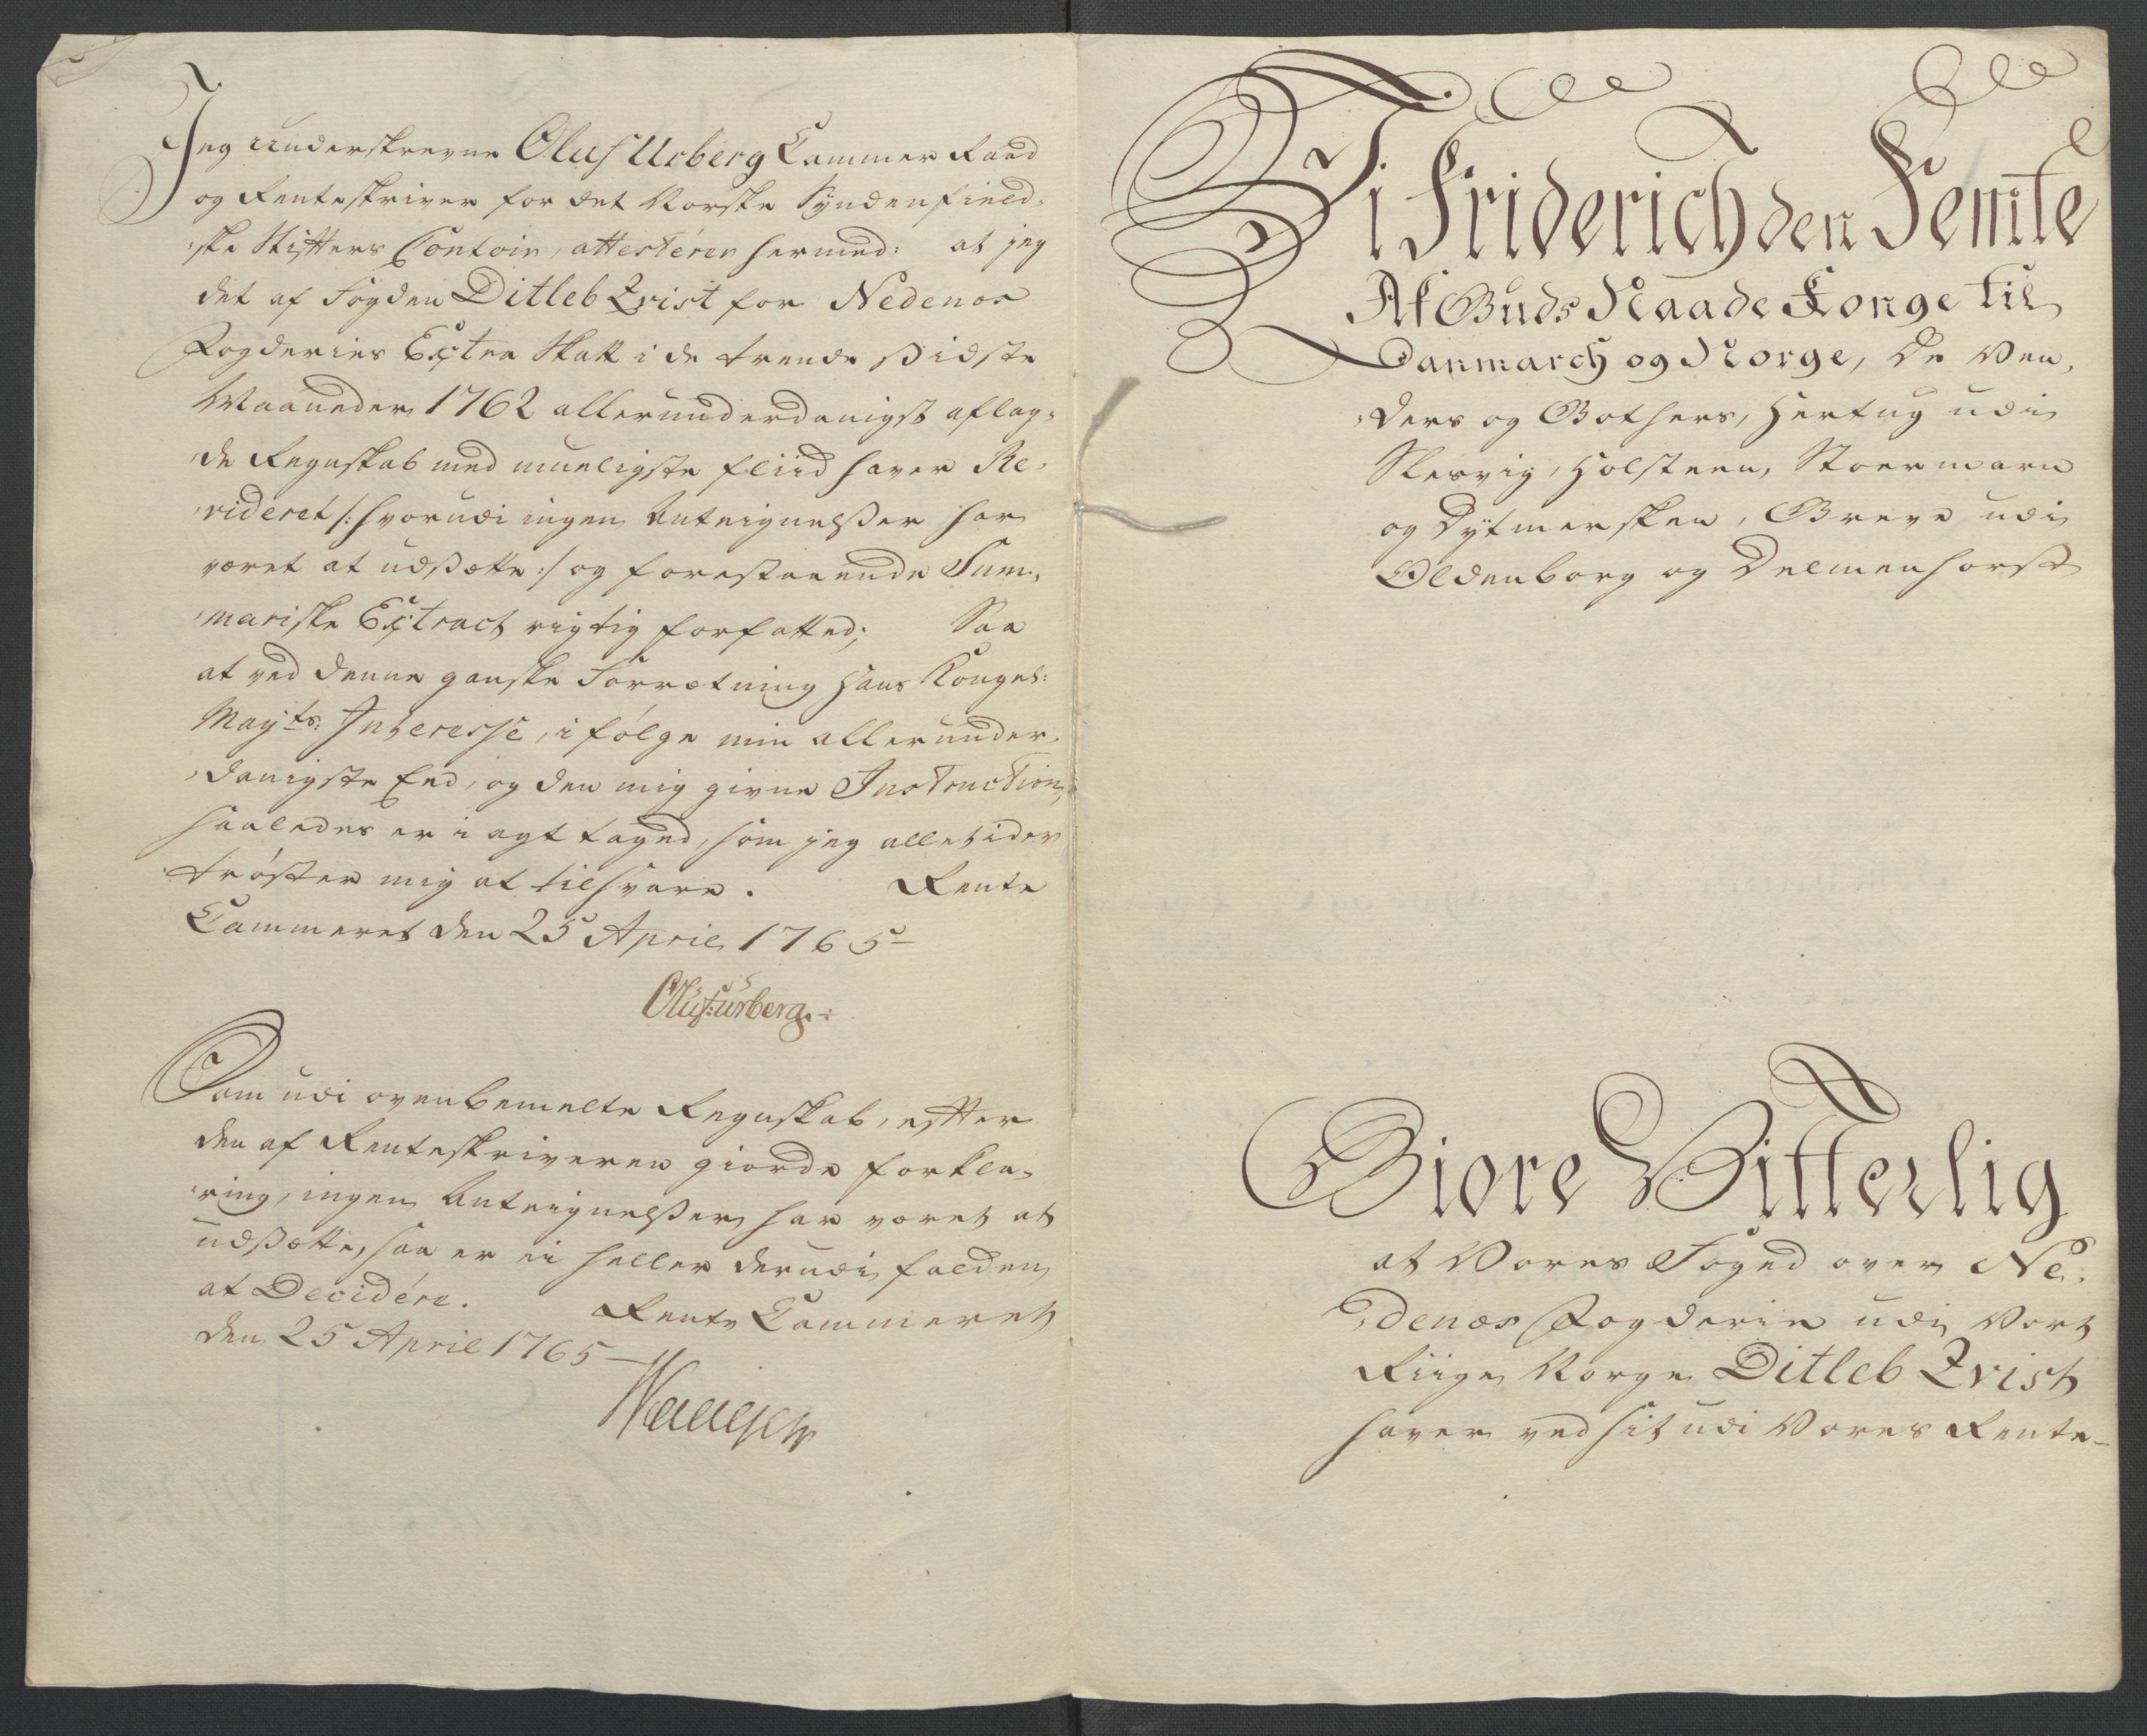 Jeg underskrevne Oluf Urberg Cammer Raad
og Renteskriver for det Norske Syndenfield,
,ske Stifters Contoir, attesterer hermed: at jeg
det af Fogden Ditleb Zrist for Nedenes
Fogderies Extra Skatt i de trende sidste
Maaneder 1762 allerunderdanigst aflag,
,de Regnskab med mueligste fliid haver Re,
,videret /: hvorudi ingen Anteignelsser har
været at udssætte :/ og forestaaende Sum,
,mariske Extract rigtig forfatted; Saa
at ved denne ganske Forretning Hans Kongel:
Mayts: Interesse, i følge min allerunder,
,danigste Eed, og den mig givne Instruction,
saaledes er i agt taged, som jeg alletider
trøster mig at tilsvare. Rente
Cammeret den 25 April 1765
Oluf Urberg.
Som udi ovenbemelte Regnskab, efter
den af Renteskriveren giorde forkla,
,ring, ingen Anteignelsser har været at
udssætte, saa er ei heller derudi falden
at Decidére. Rente Cammeret
den 25 April 1765
Vi Friderich den Femte
Af Guds Naade Konge til
Danmarch og Norge, De Ven,
,ders og Gothers, Hertug udi
Slesvig, Holsteen, Stoermarn
og Dytmersken, Greve udi
Oldenborg og Delmenhorst
Giøre Vitterlig
at Vores Foged over Ne,
,denæs Fogderie udi Vort
Riige Norge Ditleb Zrist
haver ved sit udi Vores Rente-